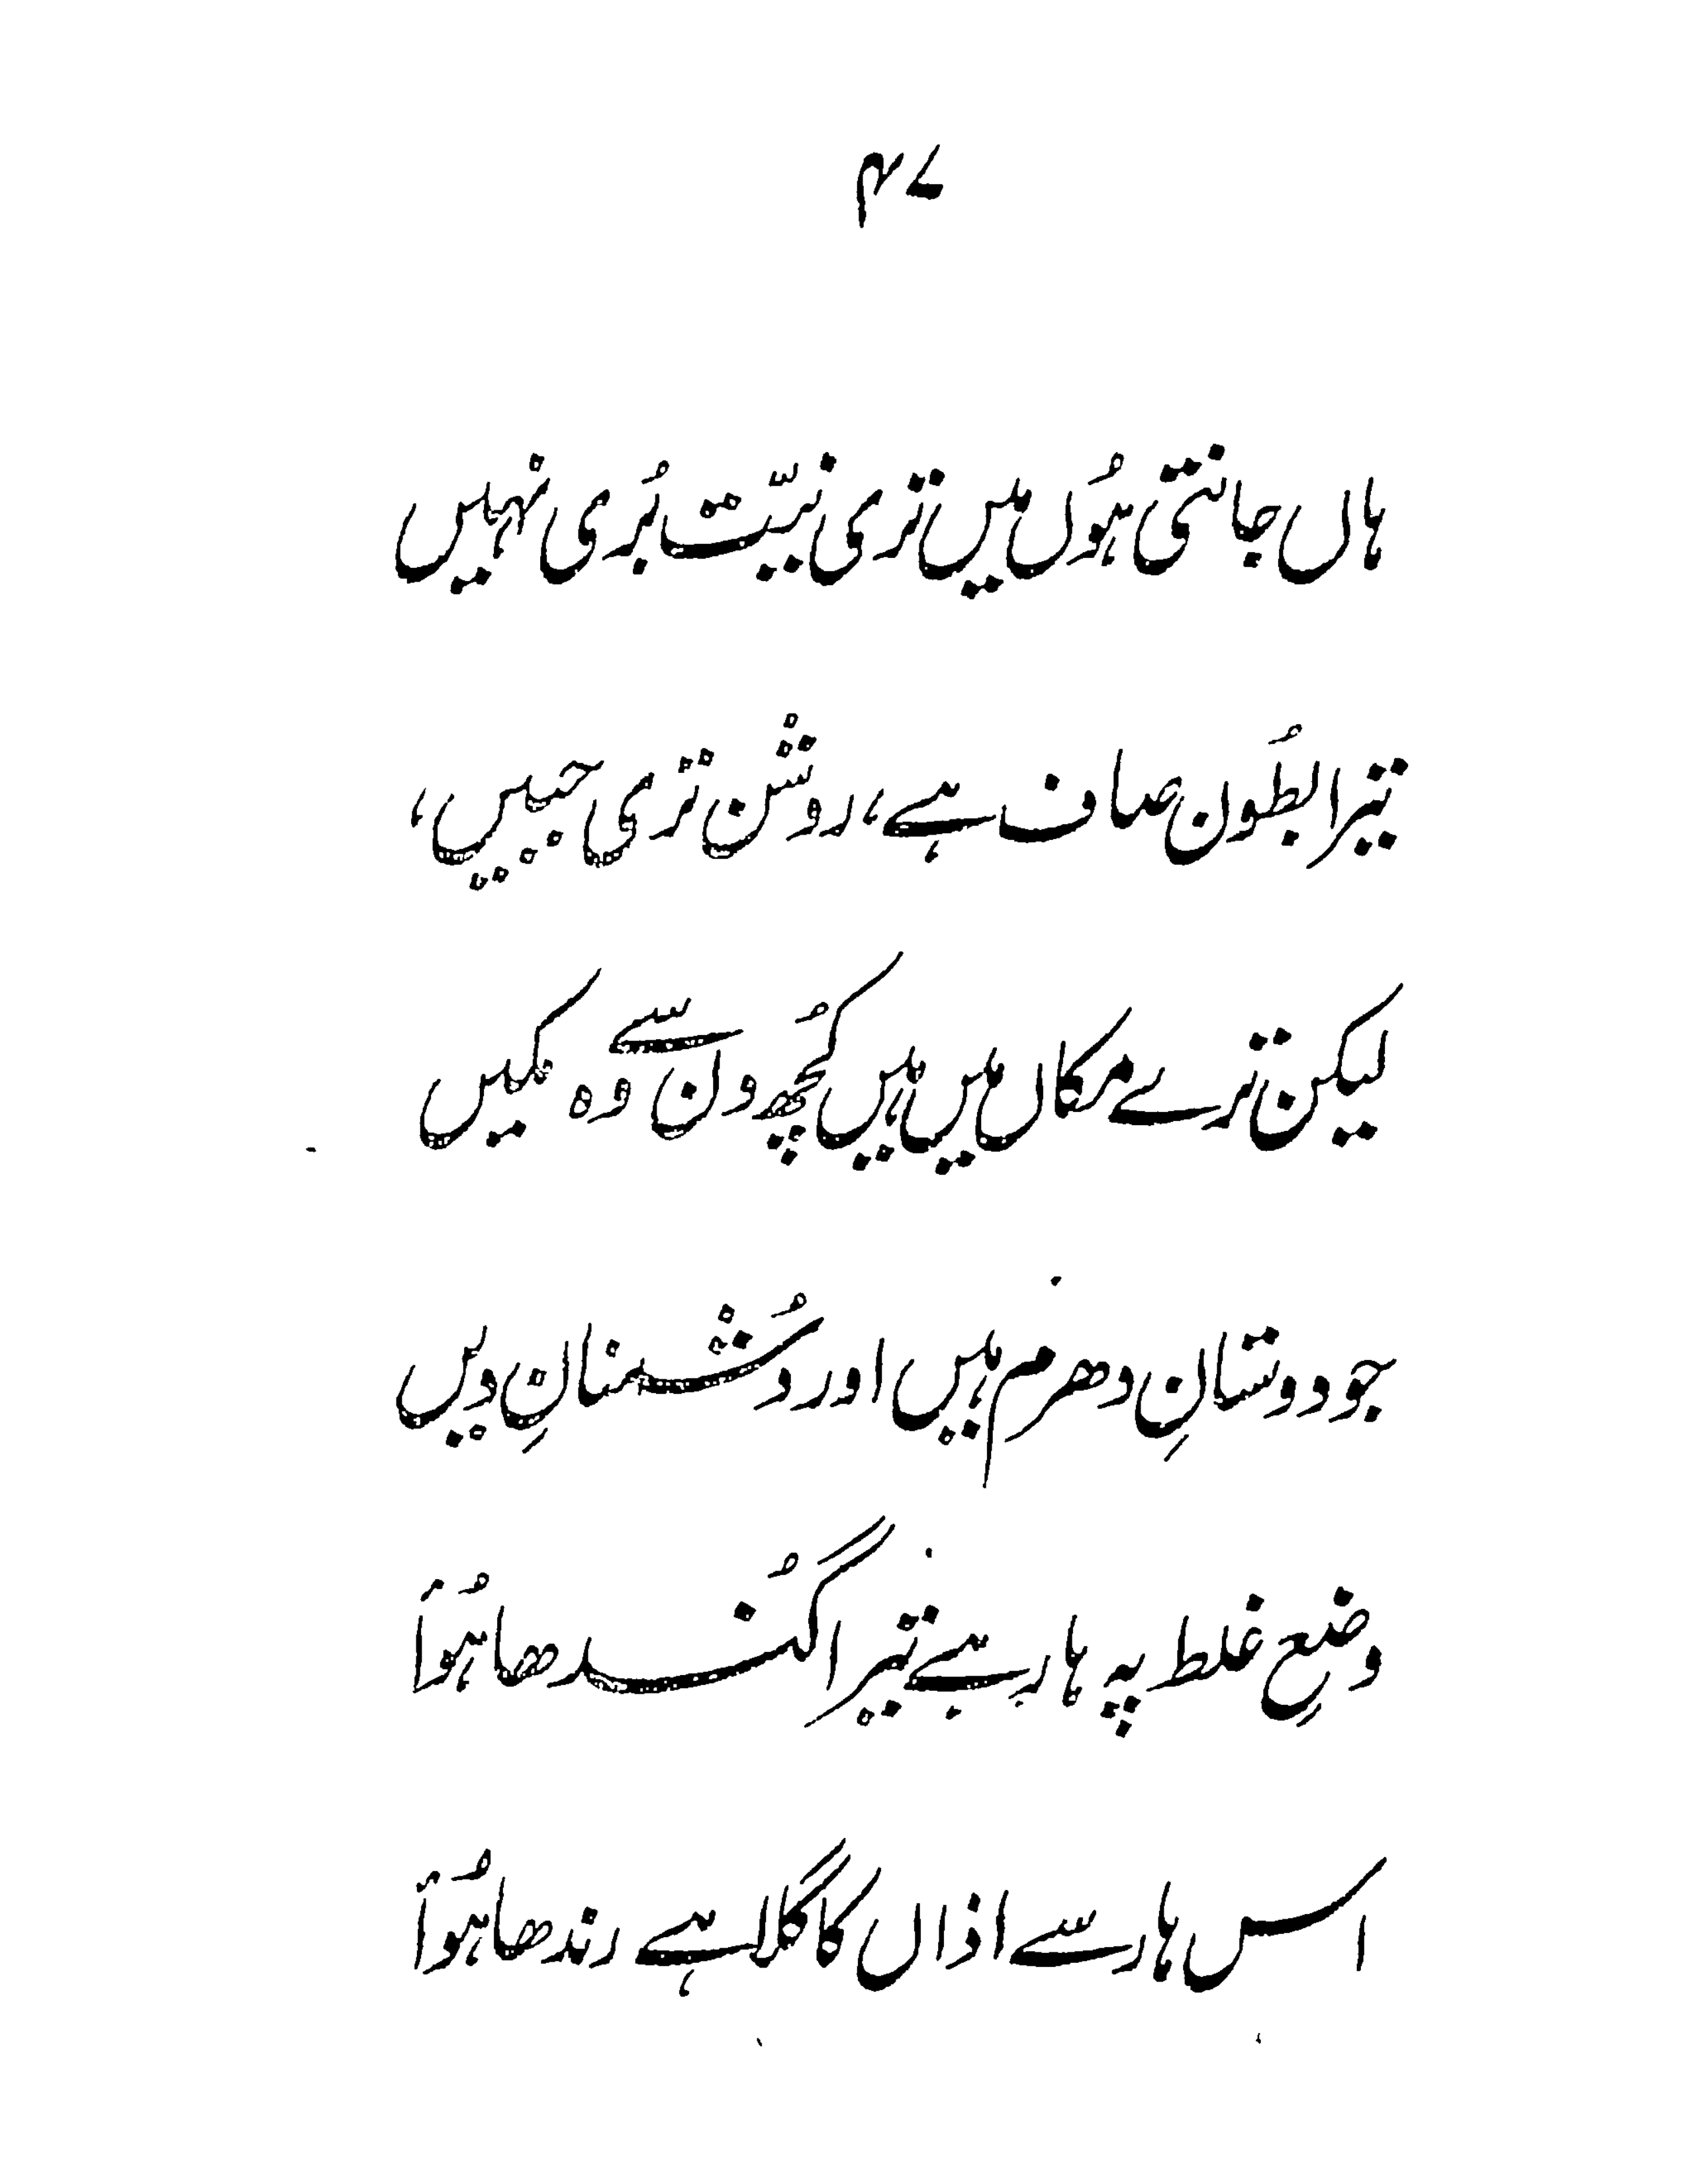 ۴۷
ہاں جانتی ہُوں میں تری نیّت بُری نہیں
تیرا بطُون صاف ہے، روشن تری جبیں،
لیکن ترے مکاں میں ہیں کُچھ دن سے وہ مکیں
جو دوستانِ دھرم ہیں اور دُشمنانِ دیں
وضعِ غلط پہ ہار ہے تیرا گُندھا ہُوا
اس ہار سے اذاں کا گلا ہے رندھا ہُوا